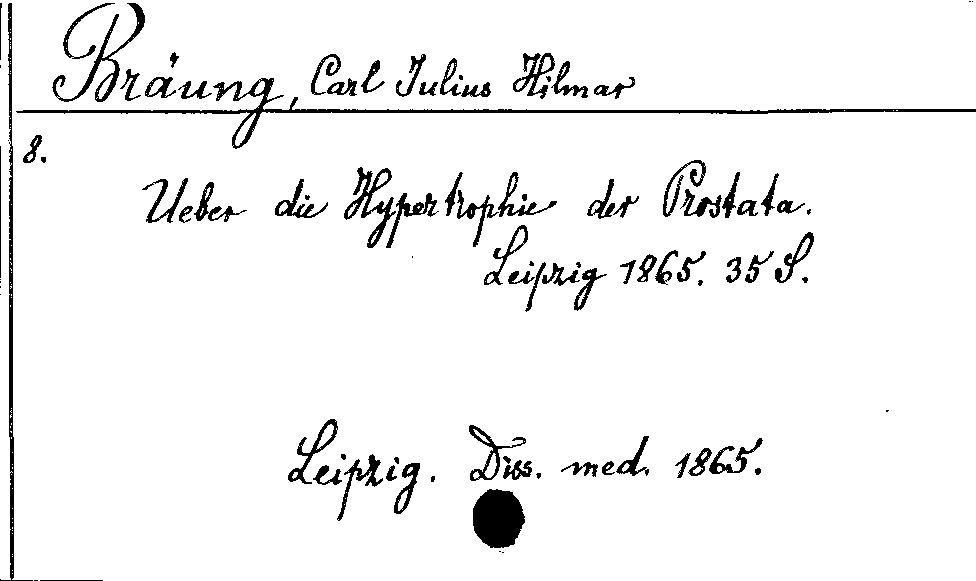 Bräung, Carl Julius Hilmar
8.
Ueber die Hypertrophie der Prostata.
Leipzig 1865. 35 S.
Leipzig. Diss. med. 1865.